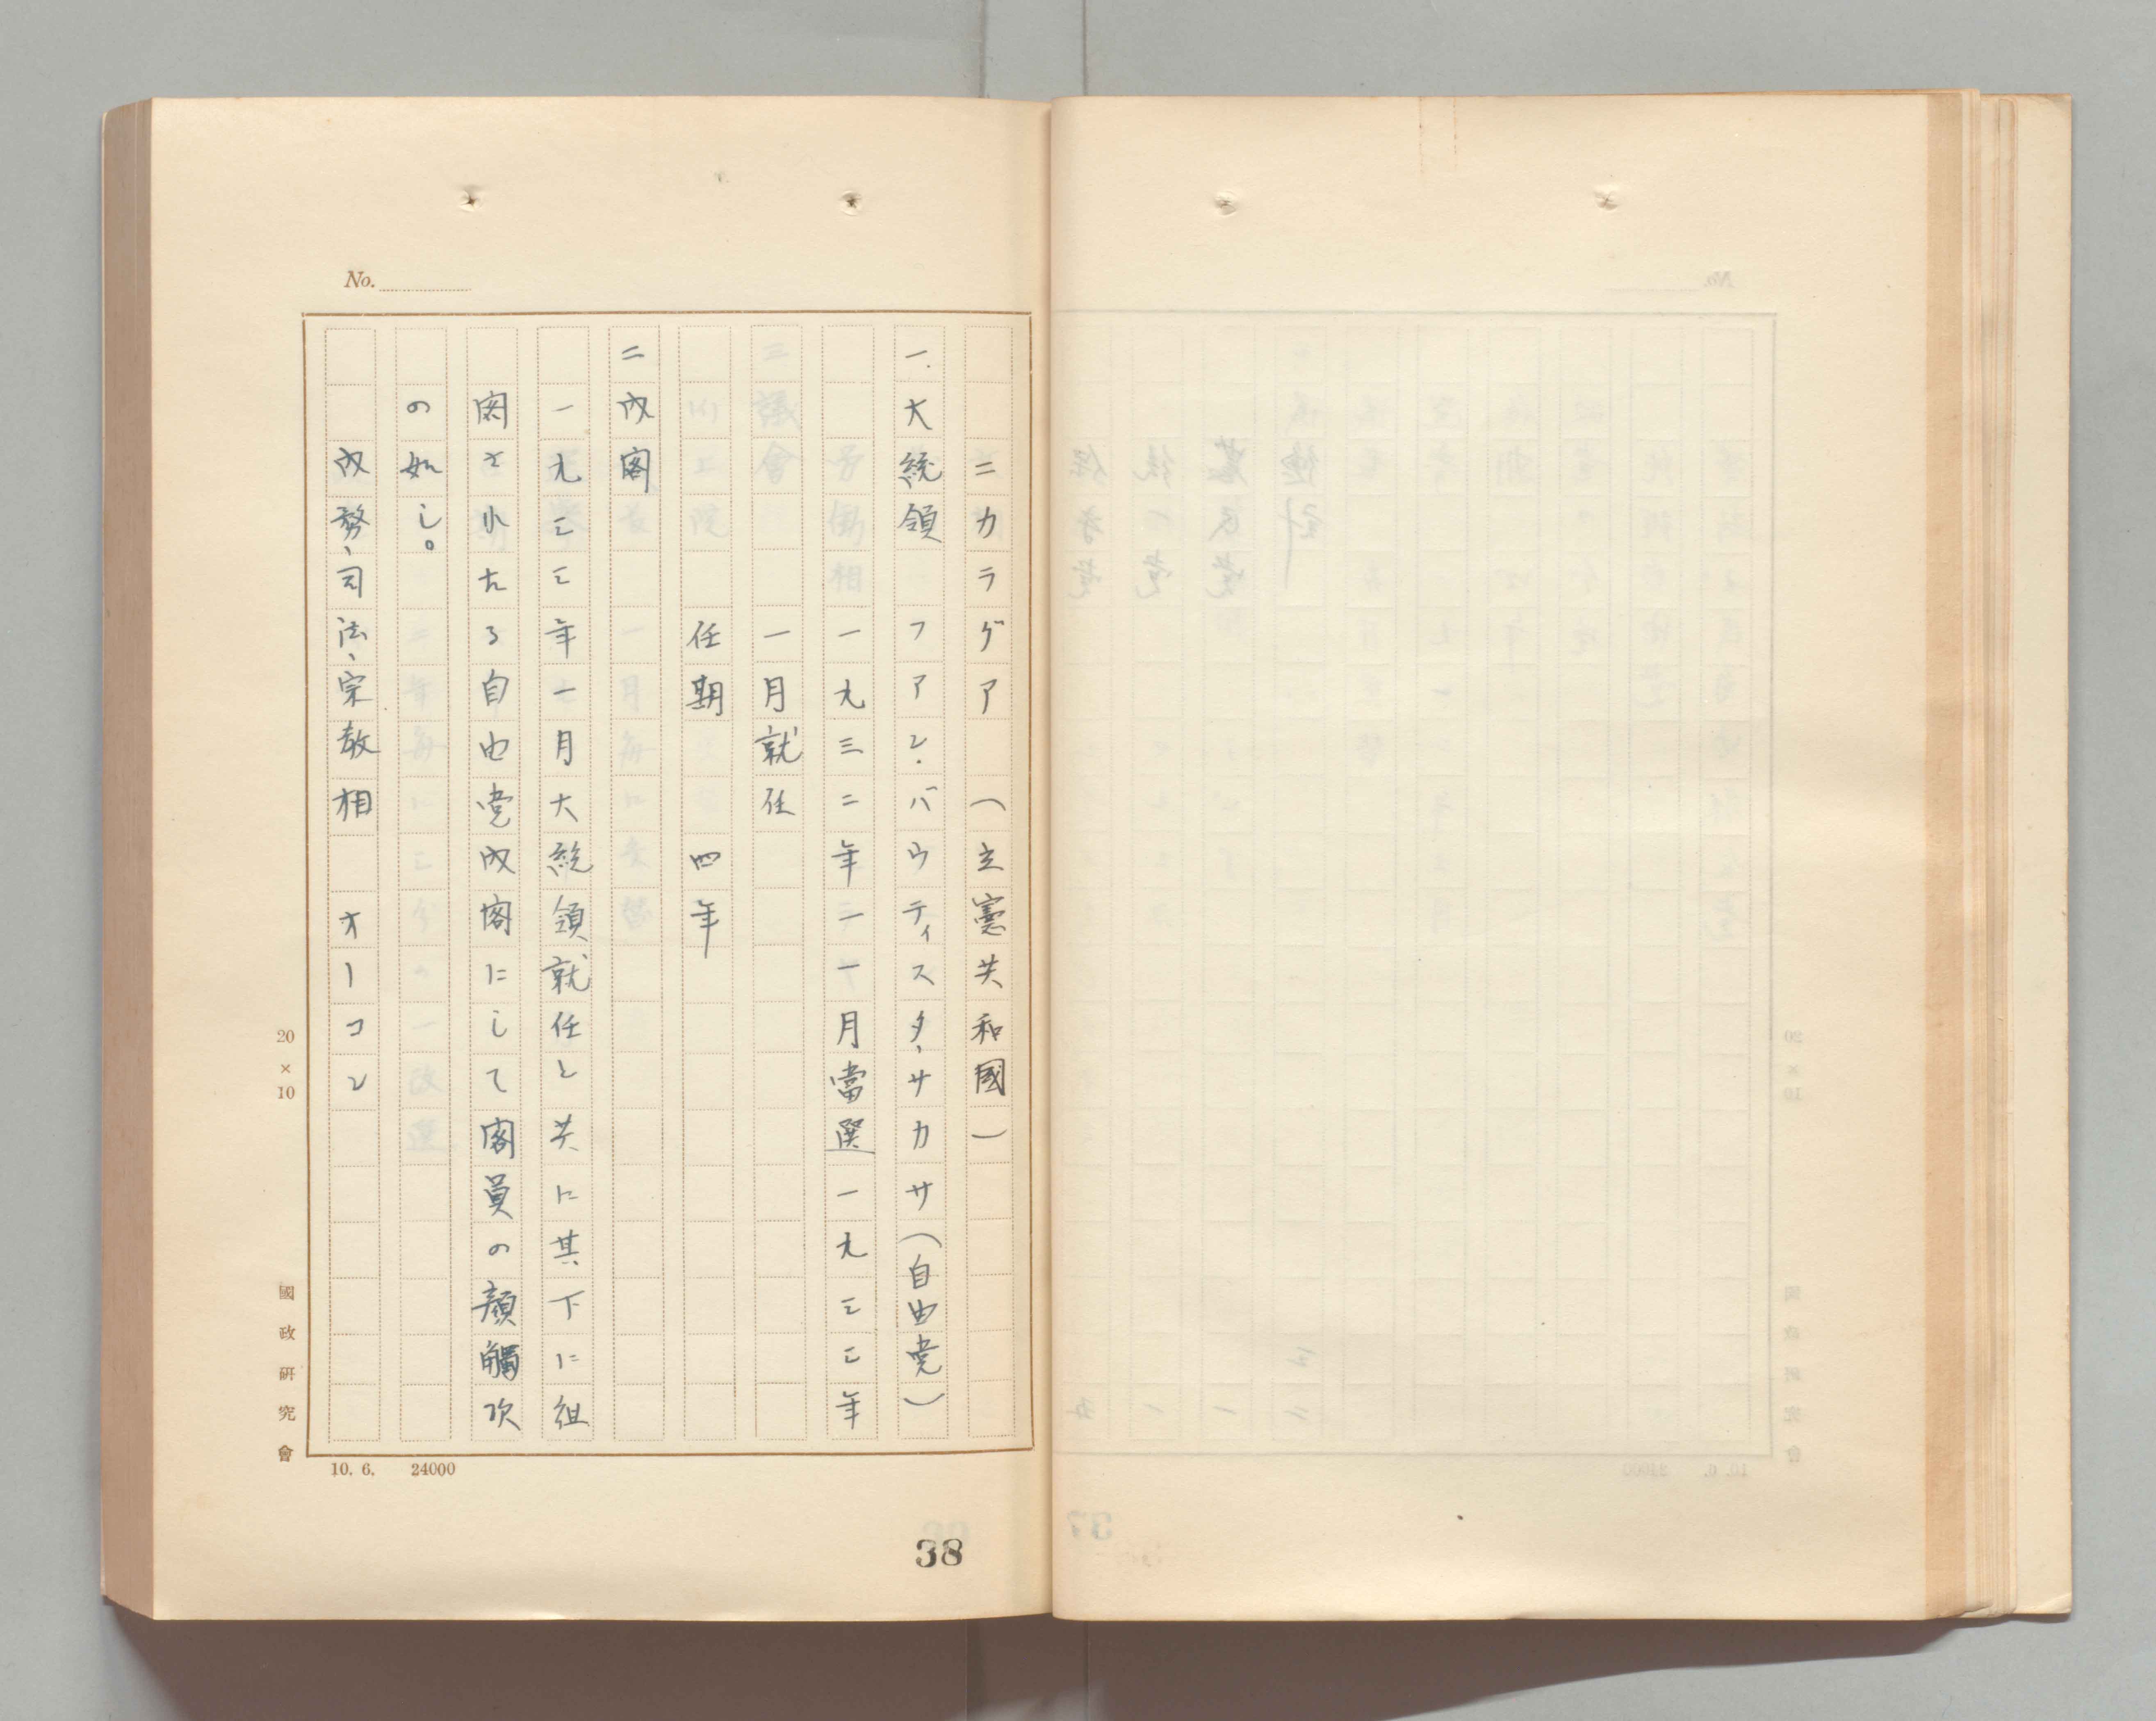 No.
ニカラグア　（立憲共和國）
一.大統領　ファン.バウティスタ、サカサ（自由党）
一九三二年一一月當選一九三三年
一月就任
任期　四年
二内閣
一九三三年一月大統領就任と共に其下に組
閣された る自由党内閣にして閣員の顔觸次
の如し。
内務、司法、宗教相　オーコン
20×10
國政研究會
10. 6.　24000
38